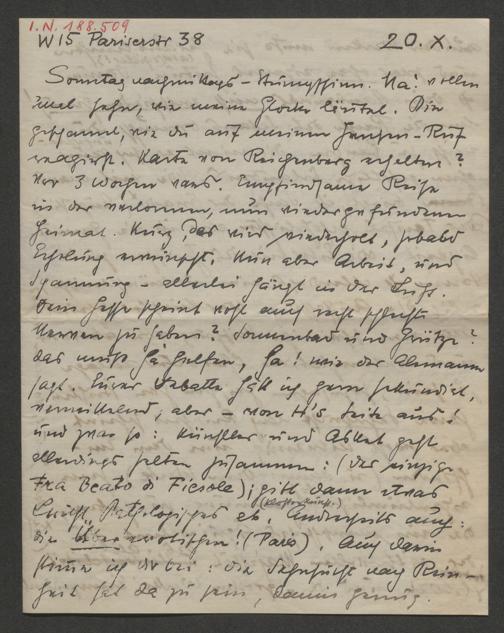 I.N. 188.509
W15 Pariserstr 38 20. X.
Sonntag nachmittags – Stumpfsinn. Na! wollen
mal sehn, wie meine Glocke läutet. Bin
gespannt, wie du auf meinen Ruf
reagierst. Karte von Reichenberg erhalten?
Vor 3 Wochen wars. Empfindsame Reise
in der verlornen, nun wiedergefundenen
Heimat. Kurz, das wird wiederholt, sobald
Erholung erwünscht. Nun aber Arbeit, und
Spannung – allerlei hängt in der Luft.
Dein scheint wohl auch recht schlechte
Nerven zu haben? Sonnenbad und Grütze?
das muß ja helfen, ja! wie der Alemanne
sagt. Eurer Debatte hätt ich gern sekundiert,
vermittelnd, aber – von H's Seite aus!
und zwar so: Künstler und Asket geht
allerdings selten zusammen: (der einzige
Fra Beato di Fiesole); gibt dann etwas
leicht Pathologisches ab. Anderseits auch:
die Übererotischen! (Paris). Auch darin
stimm ich dir bei: die Sehnsucht nach Rein-
heit hat da zu sein, damit genug.